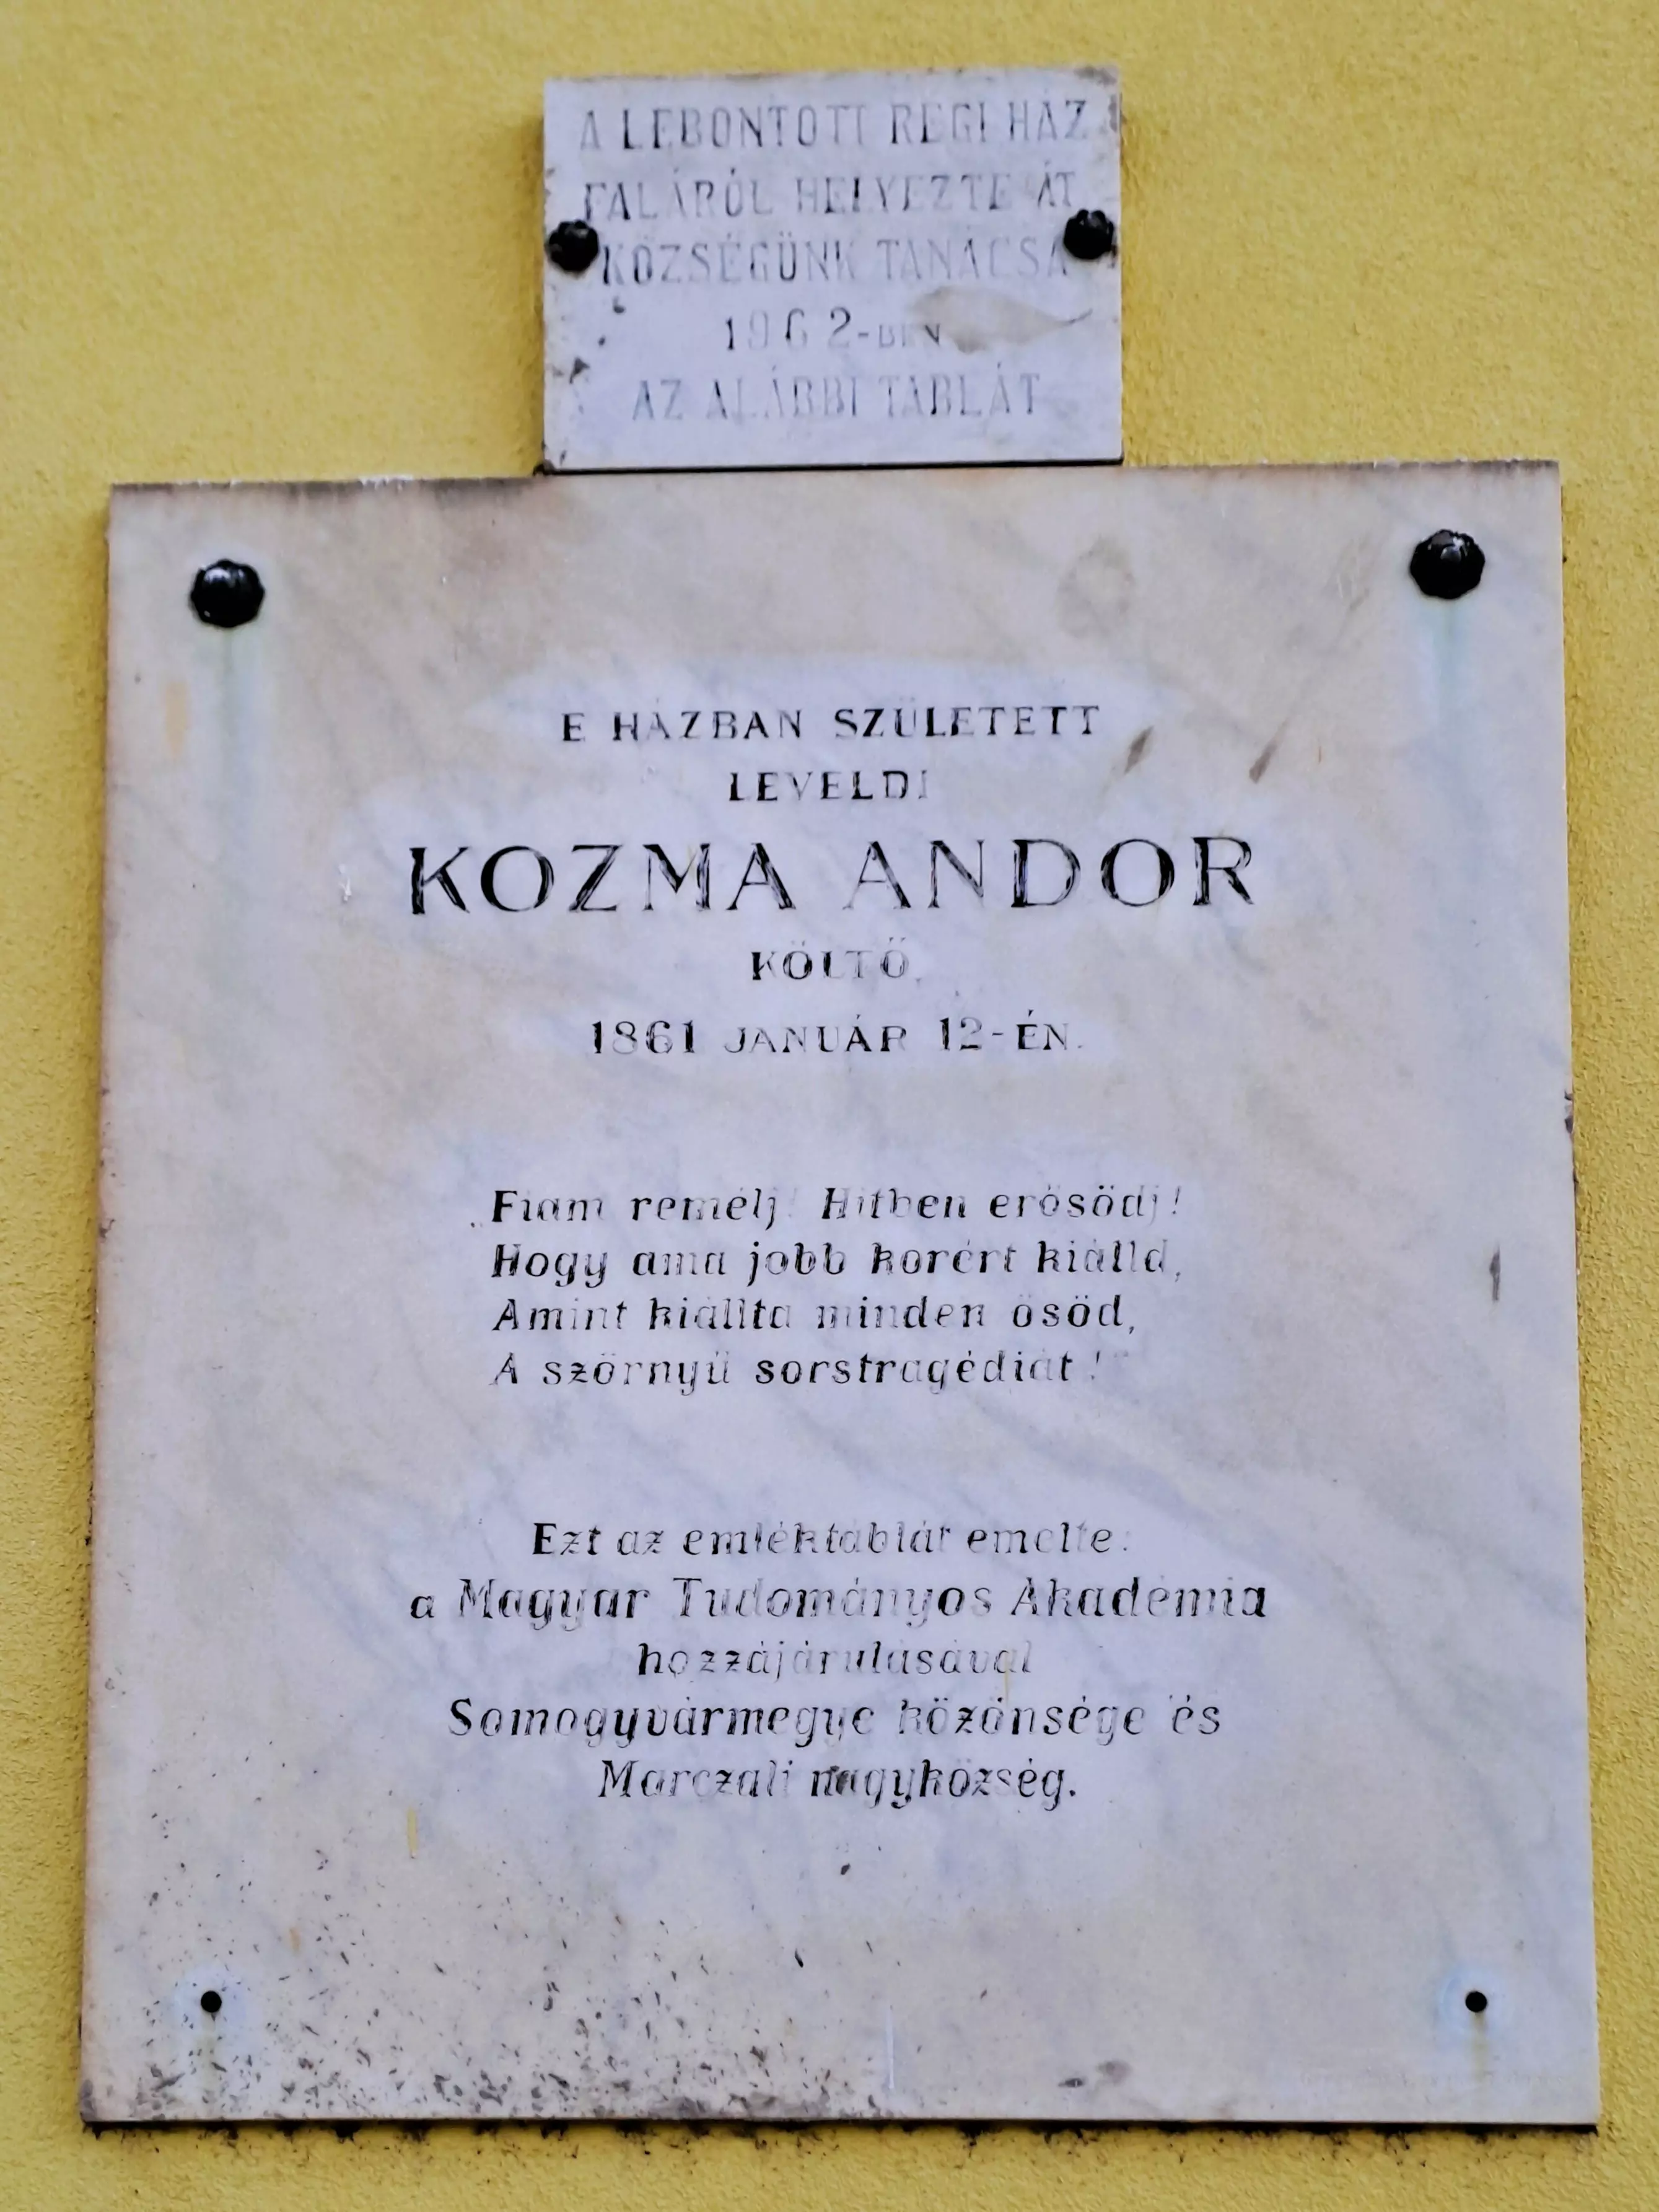 A LEBONTOTT RÉGI HÁZ
FALÁRÓL HELYEZTE ÁT
KÖZSÉGÜNK TANÁCSA
1962-BEN
AZ ALÁBBI TÁBLÁT
E HÁZBAN SZÜLETETT
LEVELDI
KOZMA ANDOR
KÖLTŐ,
1861 JANUÁR 12-ÉN.
„Fiam remélj! Hitben erősödj!
Hogy ama jobb korért kiálld,
Amint kiállta minden ősöd,
A szörnyü sorstragédiát!"
Ezt az emléktáblát emelte:
a Magyar Tudományos Akadémia
hozzájárulásával
Somogyvármegye közönsége és
Marczali nagyközség.